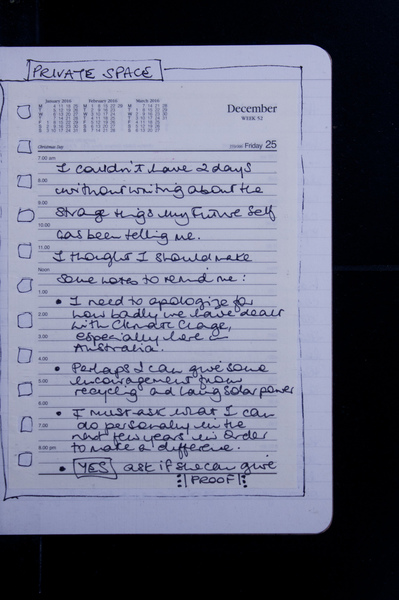 PRIVATE SPACE
January 2016 February 2016 March 2016
December
WEEK 52
Christmas Day
Friday 25
7.00 am
I couldn't have 2 days
8.00
without writing about the
9.00
strage thigs my Future Self
10.00
has been telling me.
11.00
I thought I should make
Noon
some notes to remind me:
1.00
• I need to apologize for
2.00
how badly we have dealt
with Climate Chage,
3.00
especially here in
Australia.
4.00
• Perhaps I can give some
5.00
encouragement from
recycling ad using solar power
6.00
• I must ask what I can
7.00
do personally in the
next few years in order
8.00 pm
to make a difference.
• YES ask if she can give
PROOF